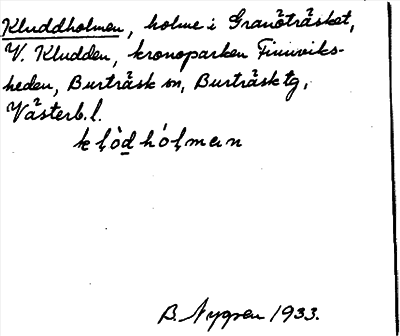 Kluddholmen, holme i Granöträsket,
V. Kludden, kronoparken Finnviks-
heden, Burträsk sn, Burträsk tg,
Västerb. l.
klo̱dhólmen
B. Nygren 1933.